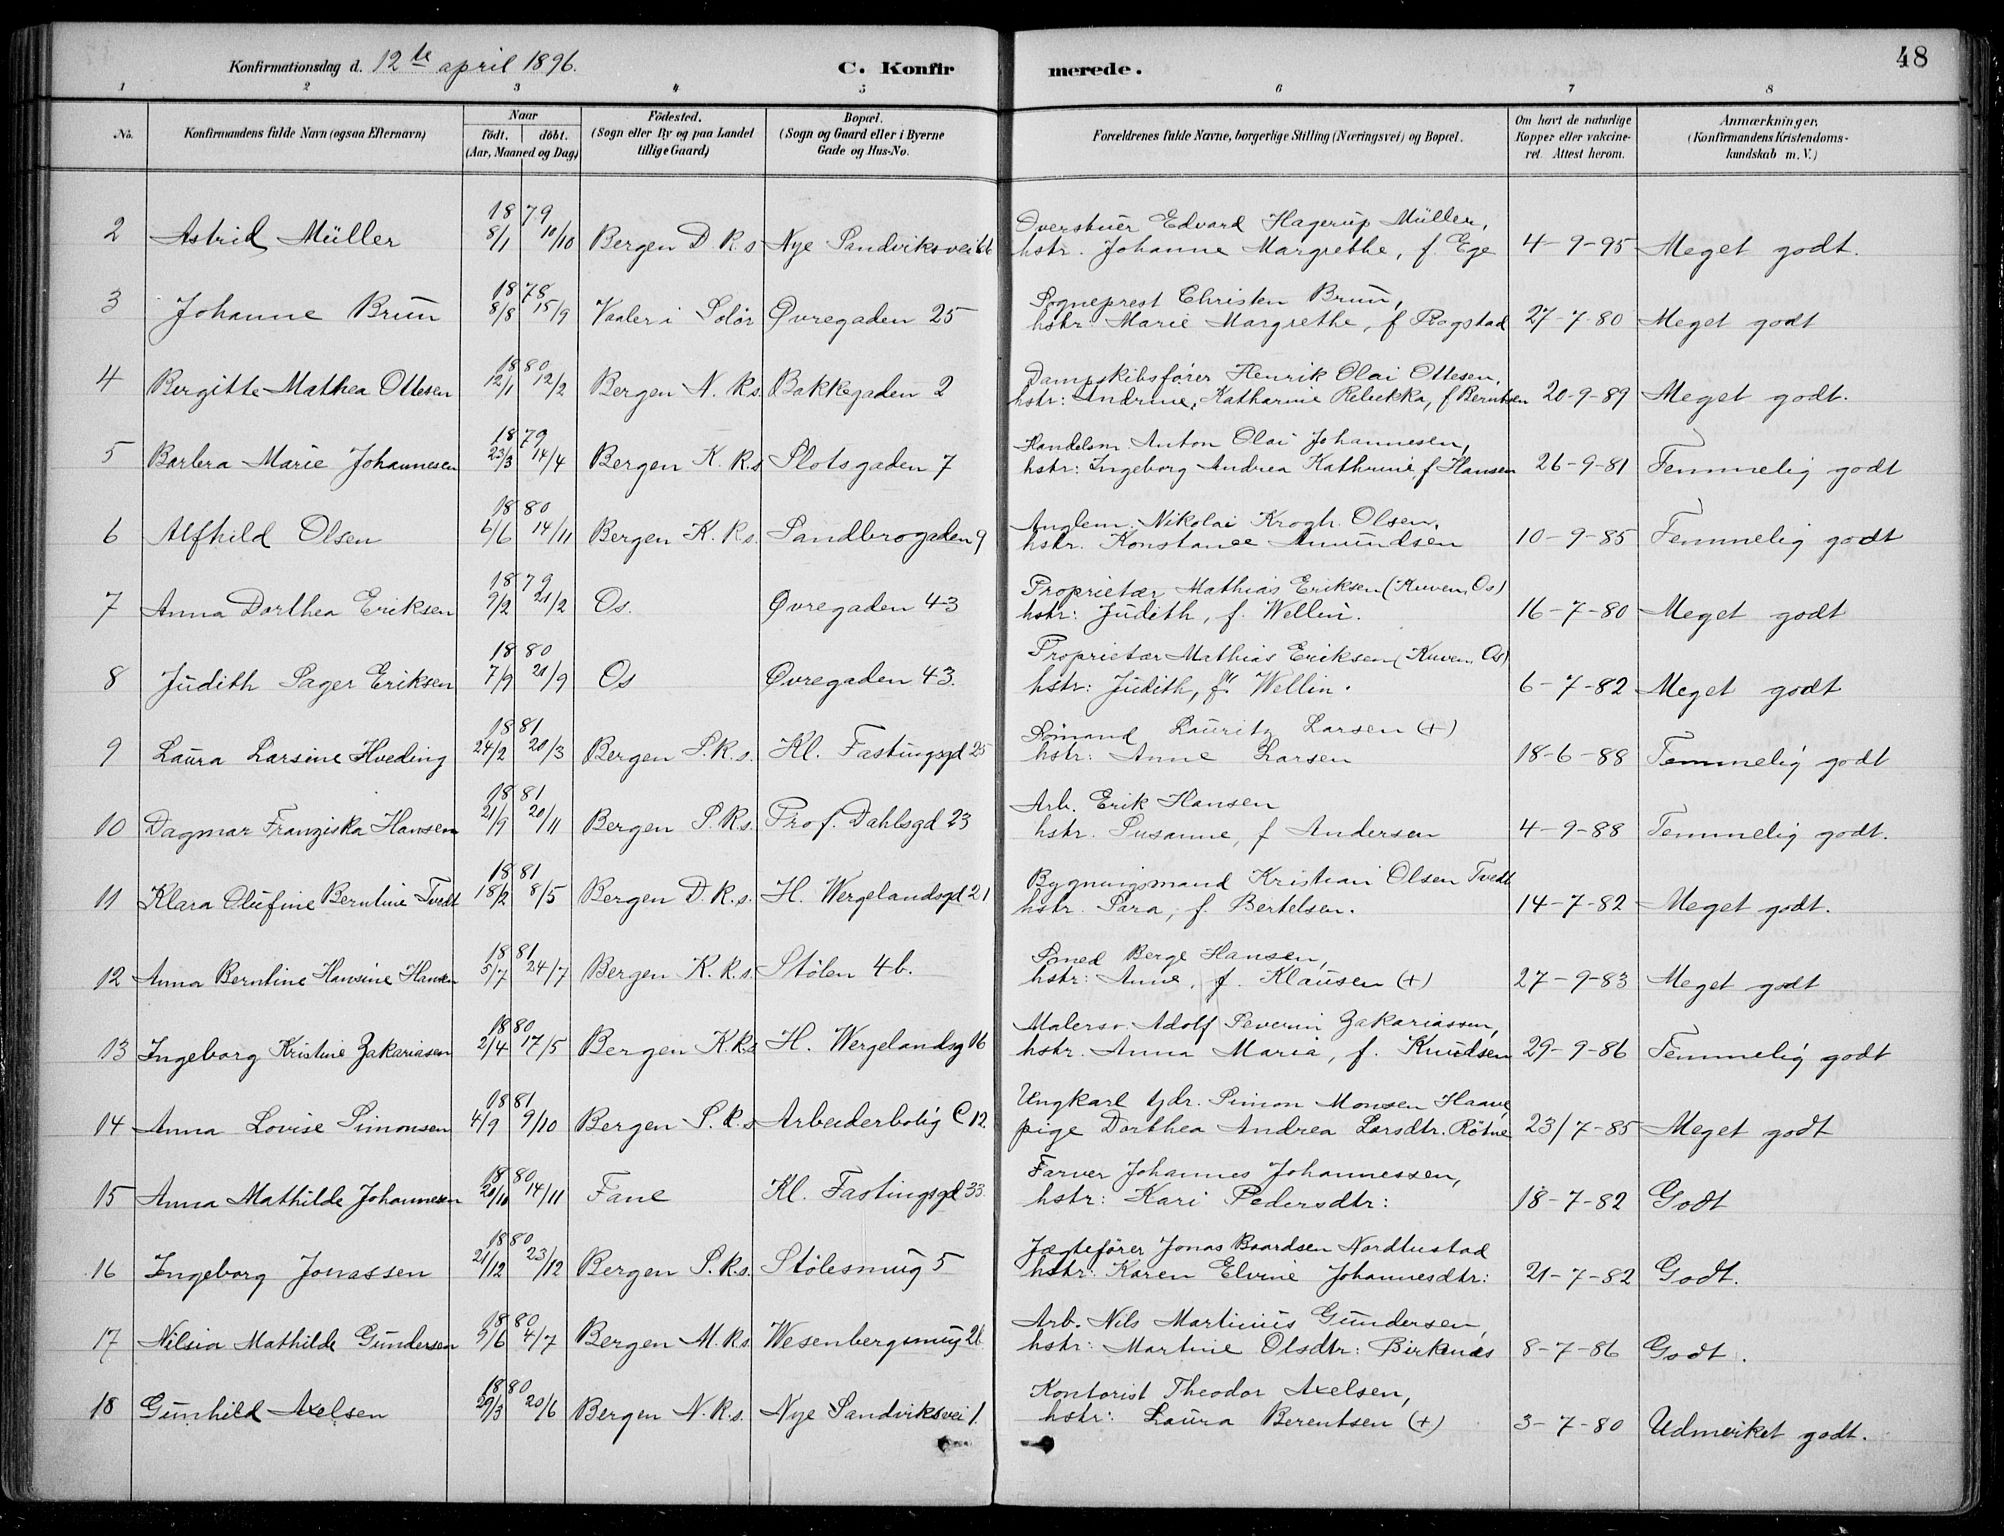 Konfirmationsdag d. 12te april 1896. C. Konfirmerede. 48
1 2 3 4 5 6 7 8
No. Konfirmandens fulde Navn (ogsaa Efternavn) Naar født. døbt. (Aar, Maaned og Dag) Fødested. (Sogn eller By og paa Landet tillige Gaard) Bopæl. (Sogn og Gaard eller i Byerne Gade og Hus-No. Forældrenes fulde Navne, borgerlige Stilling (Næringsvei) og Bopæl. Om havt de naturlige Kopper eller vakcineret. Attest herom. Anmærkninger, (Konfirmandens Kristendomskundskab m. V.)
1879 Overstuer Edvard Hagerup Müller,
2 Astrid Müller 8/1 10/10 Bergen D.K.s Nye Sandviksvei 66 hstr. Johanne Margrethe, f. Ege 4-9-95 Meget godt.
1878 Sogneprest Christen Brun,
3 Johanne Brun 8/8 15/9 Vaaler i Solør Øvregaden 25 hstr. Marie Margrethe, f Rogstad 27-7-80 Meget godt
1880 Dampskibsfører Henrik Olai Ottesen,
4 Bergitte Mathea Ottesen 12/1 12/2 Bergen N.K.s. Bakkegaden 2 hstr: Andrine, Katharine Rebekka, f Berntsen 20-9-89 Meget godt.
1879 Handelsm. Anton Olai Johannesen,
5 Barbra Marie Johannesen 23/3 14/4 Bergen K.K.s Slotsgaden 7 hstr: Ingeborg Andrea Kathrine, f Hansen 26-9-81 Temmelig godt
1880 Nikolai Krogh Olsen,
6 Alfhild Olsen 6/6 14/11 Bergen K.K.s. Sandbrogaden 9 hstr. Konstance Amundsen 10-9-85 Temmelig godt
1879 Proprietær Mathias Eriksen (Kuven, Os)
7 Anna Dorthea Eriksen 9/2 21/2 Os. Øvregaden 43 hstr: Judith, f. Wellin. 16-7-80 Meget godt
1880 Proprietær Mathias Eriksen (Kuven, Os)
8 Judith Sager Eriksen 7/9 21/9 Os Øvregaden 43. hstr: Judith, f. Wellin. 6-7-82 Meget godt
1881 Sømand Lauritz Larsen (+)
9 Laura Larsine Hveding 24/2 20/3 Bergen S.K.s. Kl. Fastingsgd 25 hstr: Anne Larsen 18-6-88 Temmelig godt
1881 Arb. Erik Hansen
10 Dagmar Franziska Hansen 21/9 20/11 Bergen S.K.s. Prof. Dahlsgd 23 hstr. Susanne, f Andersen 4-9-88 Temmelig godt.
1881 Bygningsmand Kristian Olsen Tvedt
11 Klara Olufine Berntine Tvedt 18/2 8/5 Bergen D.K.s. H. Wergelandsgd 21 hstr. Sara, f. Bertelsen. 14-7-82 Meget godt.
1881 Smed Berge Hansen,
12 Anna Berntine Hansine Hansen 5/7 24/7 Bergen K.K.s. Stølen 4b. hstr: Anne, f. Klausen (+) 27-9-83 Meget godt
1880 Malersv. Adolf Severin Zakariassen,
13 Ingeborg Kristine Zakariasen 2/4 17/5 Bergen K.K.s H. Wergelandsg 16 hstr. Anna Maria, f. Knudsen 29-9-86 Temmelig godt
1881 Ungkarl Simon Monsen Haave,
14 Anna Lovise Simonsen 4/9 9/10 Bergen S.K.s Arbeiderbolig C 12. pige Dorthea Andrea Larsdtr. 23/7-85 Meget godt
1880 Farver Johannes Johannessen,
15 Anna Mathilde Johannesen 20/10 14/11 Fane Kl. Fastingsgd 33. hstr: Kari Pedersdtr: 18-7-82 Godt
1880 Jægtefører Jonas Baardsen
16 Ingeborg Jonassen 21/12 23/12 Bergen S.K.s. Stølesmug 5 hstr: Karen Elvine Johannesdtr: 21-7-82 Godt.
1880 Arb. Nils Martinius Gundersen,
17 Nilsia Mathilde Gundersen 9/6 4/7 Bergen M.K.s. Wesenbergsmug 2b hstr: Martine Olsdtr: Birknæs 8-7-86 Godt.
1880 Kontorist Theodor Axelsen,
18 Gunhild Axelsen 29/3 20/6 Bergen N.K.s. Nye Sandviksvei 1. hstr: Laura Berentsen (+) 3-7-80 Udmerket godt.